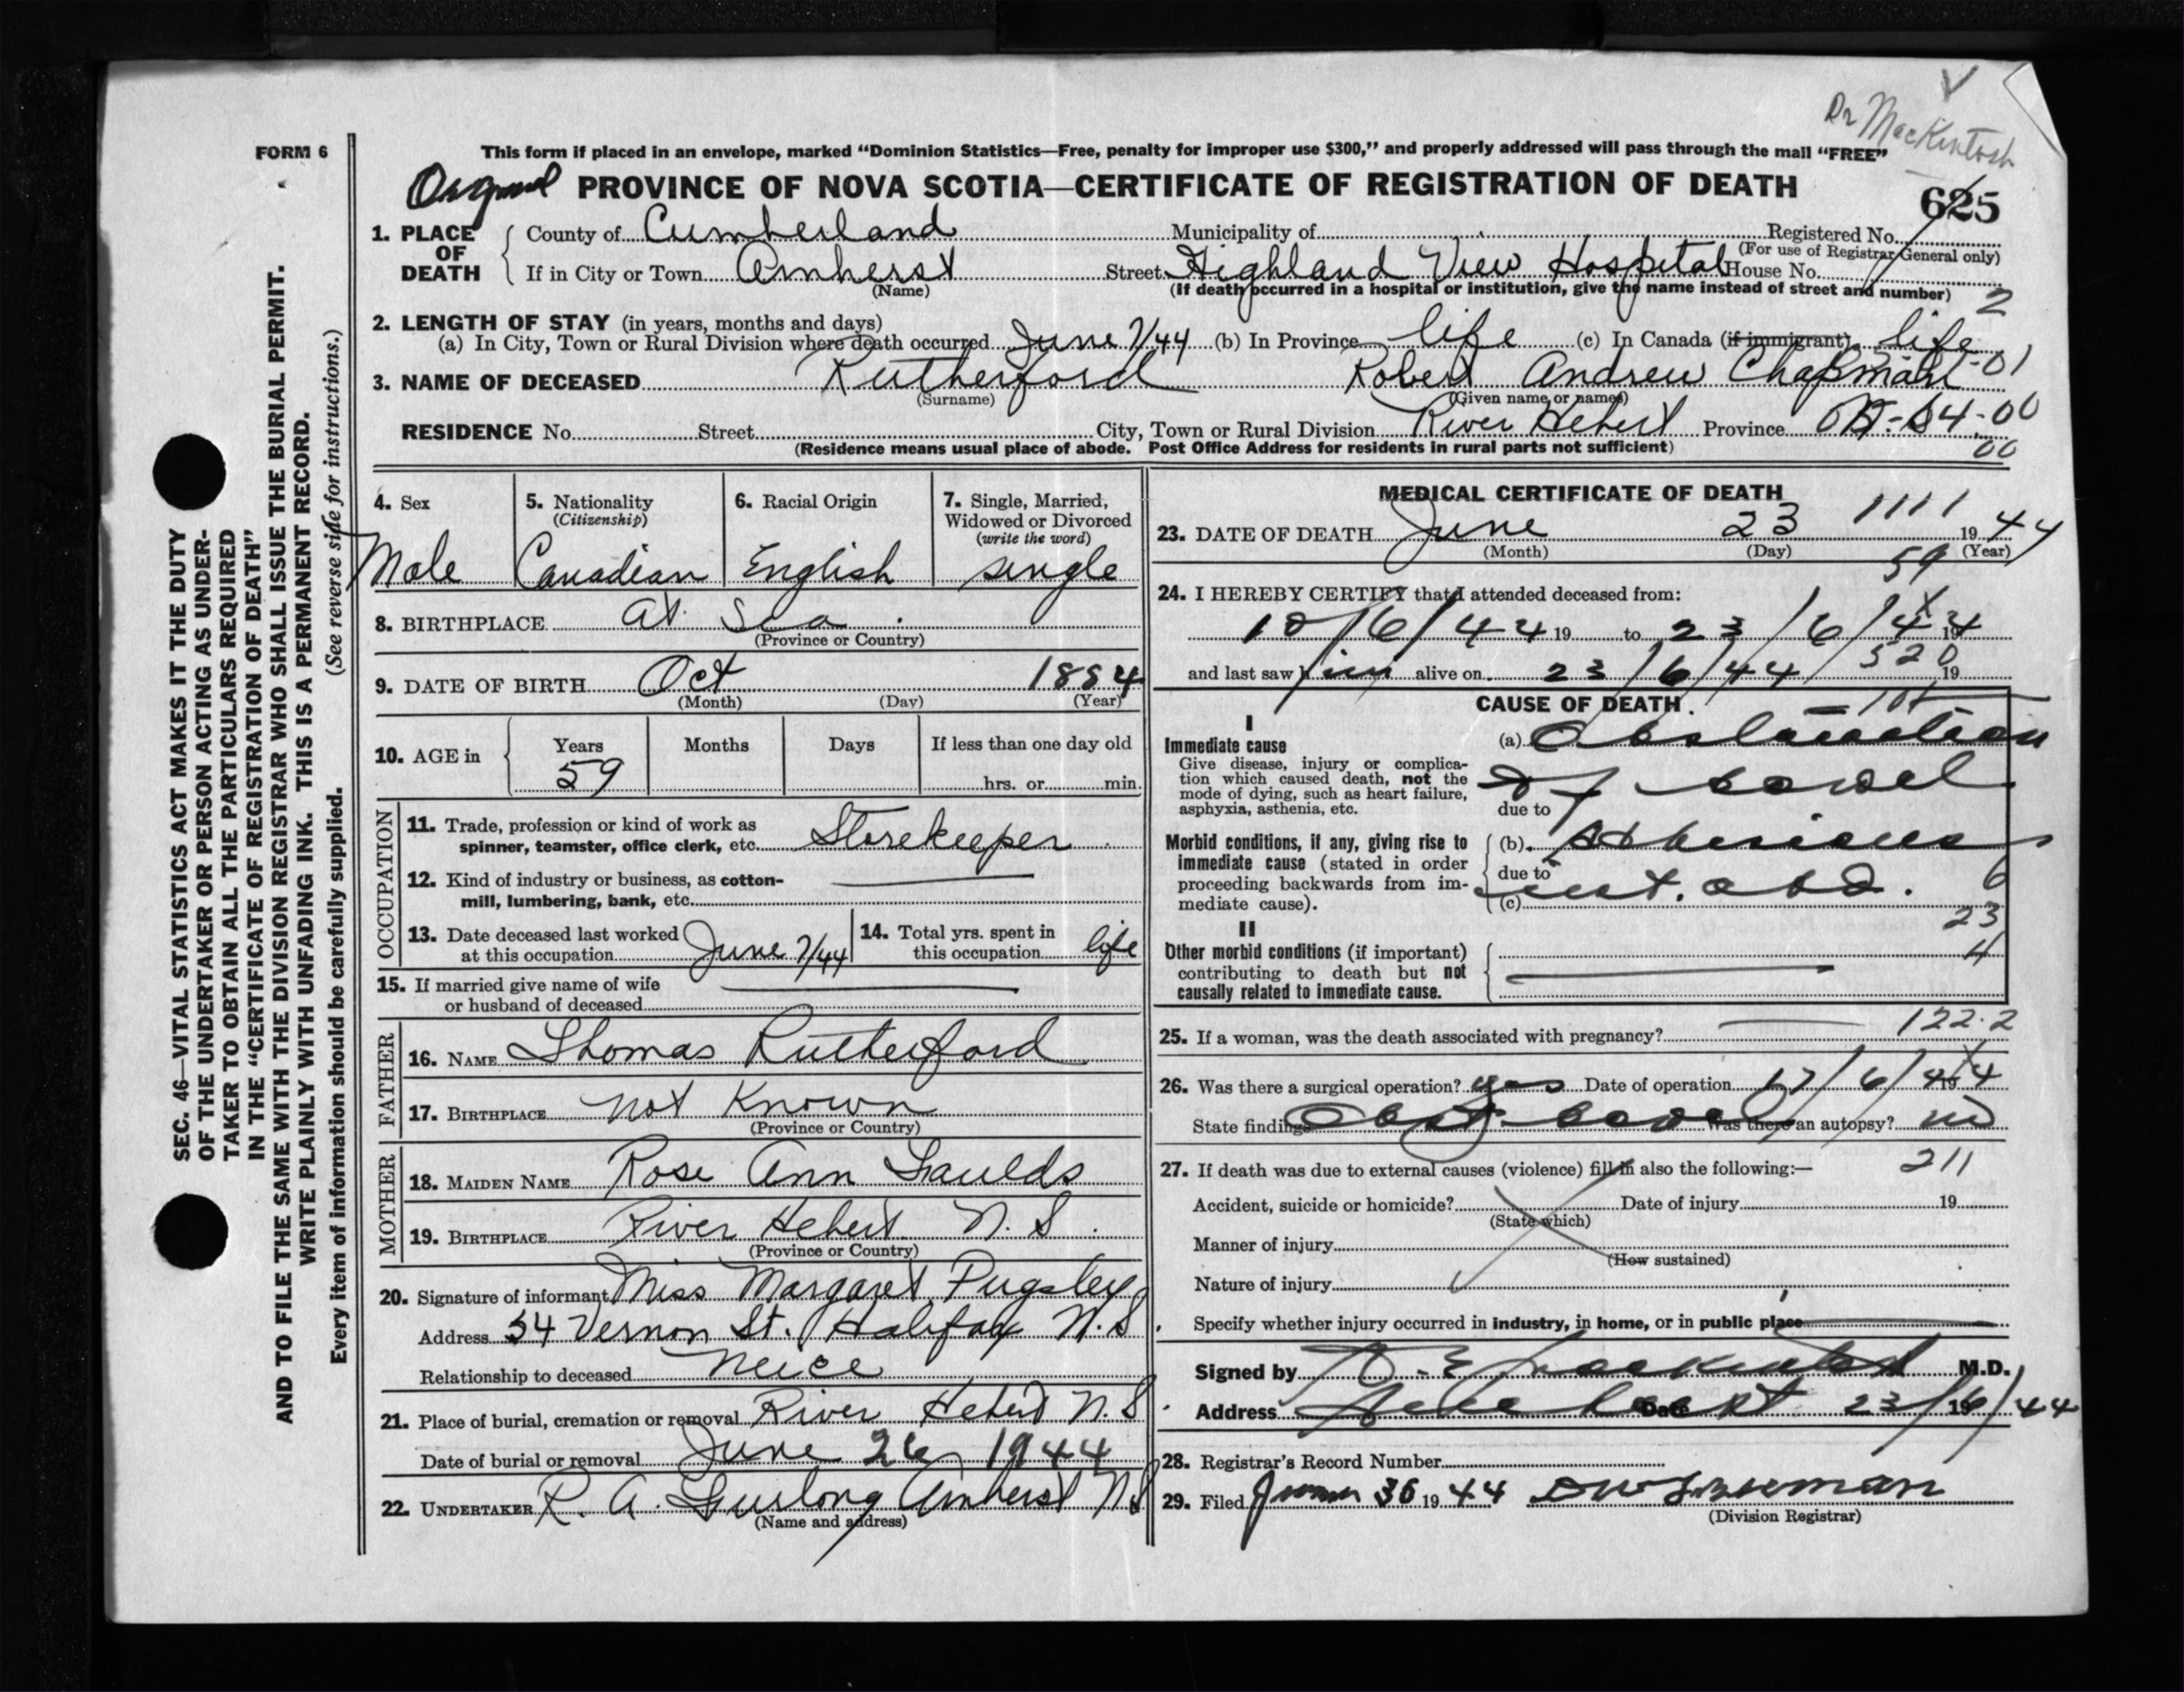 Dr MacKintosh
FORM 6
This form if placed in an envelope, marked “Dominion Statistics—Free, penalty for improper use $300,” and properly addressed will pass through the mail “FREE”
Original PROVINCE OF NOVA SCOTIA—CERTIFICATE OF REGISTRATION OF DEATH
625
1. PLACE OF DEATH
County of Cumberland Municipality of Registered No.
(For use of Registrar General only)
If in City or Town Amherst Street Highland View Hospital House No.
(Name) (If death occurred in a hospital or institution, give the name instead of street and number)
2
2. LENGTH OF STAY (in years, months and days)
(a) In City, Town or Rural Division where death occurred June 7/44 (b) In Province life (c) In Canada (if immigrant) life
3. NAME OF DECEASED Rutherford Robert Andrew Chapman -01
(Surname) (Given name or names)
RESIDENCE No. Street City, Town or Rural Division River Hebert Province
(Residence means usual place of abode. Post Office Address for residents in rural parts not sufficient) 00
SEC. 46—VITAL STATISTICS ACT MAKES IT THE DUTY
OF THE UNDERTAKER OR PERSON ACTING AS UNDER-
TAKER TO OBTAIN ALL THE PARTICULARS REQUIRED
IN THE “CERTIFICATE OF REGISTRATION OF DEATH”
AND TO FILE THE SAME WITH THE DIVISION REGISTRAR WHO SHALL ISSUE THE BURIAL PERMIT.
WRITE PLAINLY WITH UNFADING INK. THIS IS A PERMANENT RECORD.
Every item of information should be carefully supplied. (See reverse side for instructions.)
4. Sex
Male
5. Nationality
(Citizenship)
Canadian
6. Racial Origin
English
7. Single, Married,
Widowed or Divorced
(write the word)
single
8. BIRTHPLACE At Sea.
(Province or Country)
9. DATE OF BIRTH Oct 1884
(Month) (Day) (Year)
10. AGE in
Years Months Days If less than one day old
59 hrs. or min.
OCCUPATION
11. Trade, profession or kind of work as
spinner, teamster, office clerk, etc. Storekeeper
12. Kind of industry or business, as cotton-
mill, lumbering, bank, etc.
13. Date deceased last worked
at this occupation June 7/44
14. Total yrs. spent in
this occupation life
15. If married give name of wife
or husband of deceased
FATHER
16. NAME Thomas Rutherford
17. BIRTHPLACE Not Known
(Province or Country)
MOTHER
18. MAIDEN NAME Rose Ann
19. BIRTHPLACE River Hebert N.S.
(Province or Country)
20. Signature of informant Miss Margaret Pugsley
Address 54 Vernon St. Halifax N.S.
Relationship to deceased Neice
21. Place of burial, cremation or removal River Hebert N.S.
Date of burial or removal June 26 1944
22. UNDERTAKER R. A. Furlong Amherst N.S.
(Name and address)
MEDICAL CERTIFICATE OF DEATH
1111
23. DATE OF DEATH June 23 1944
(Month) (Day) (Year)
59
24. I HEREBY CERTIFY that I attended deceased from:
10/6/44 19 to 23/6/44 19
and last saw him alive on 23/6/44 19
520
CAUSE OF DEATH.
I
Immediate cause
Give disease, injury or complica-
tion which caused death, not the
mode of dying, such as heart failure,
asphyxia, asthenia, etc.
(a) Obstruction
of bowel
due to
Morbid conditions, if any, giving rise to
immediate cause (stated in order
proceeding backwards from im-
mediate cause).
(b) Adhesions
due to
(c) abd.
6
23
4
II
Other morbid conditions (if important)
contributing to death but not
causally related to immediate cause.
25. If a woman, was the death associated with pregnancy?
122.2
26. Was there a surgical operation? yes Date of operation 17/6/44 19
State findings Was there an autopsy? no
27. If death was due to external causes (violence) fill in also the following:—
211
Accident, suicide or homicide? Date of injury 19
(State which)
Manner of injury
(How sustained)
Nature of injury
Specify whether injury occurred in industry, in home, or in public place
Signed by M.D.
Address Date 23/6/44 19
28. Registrar's Record Number
29. Filed 19 44
(Division Registrar)